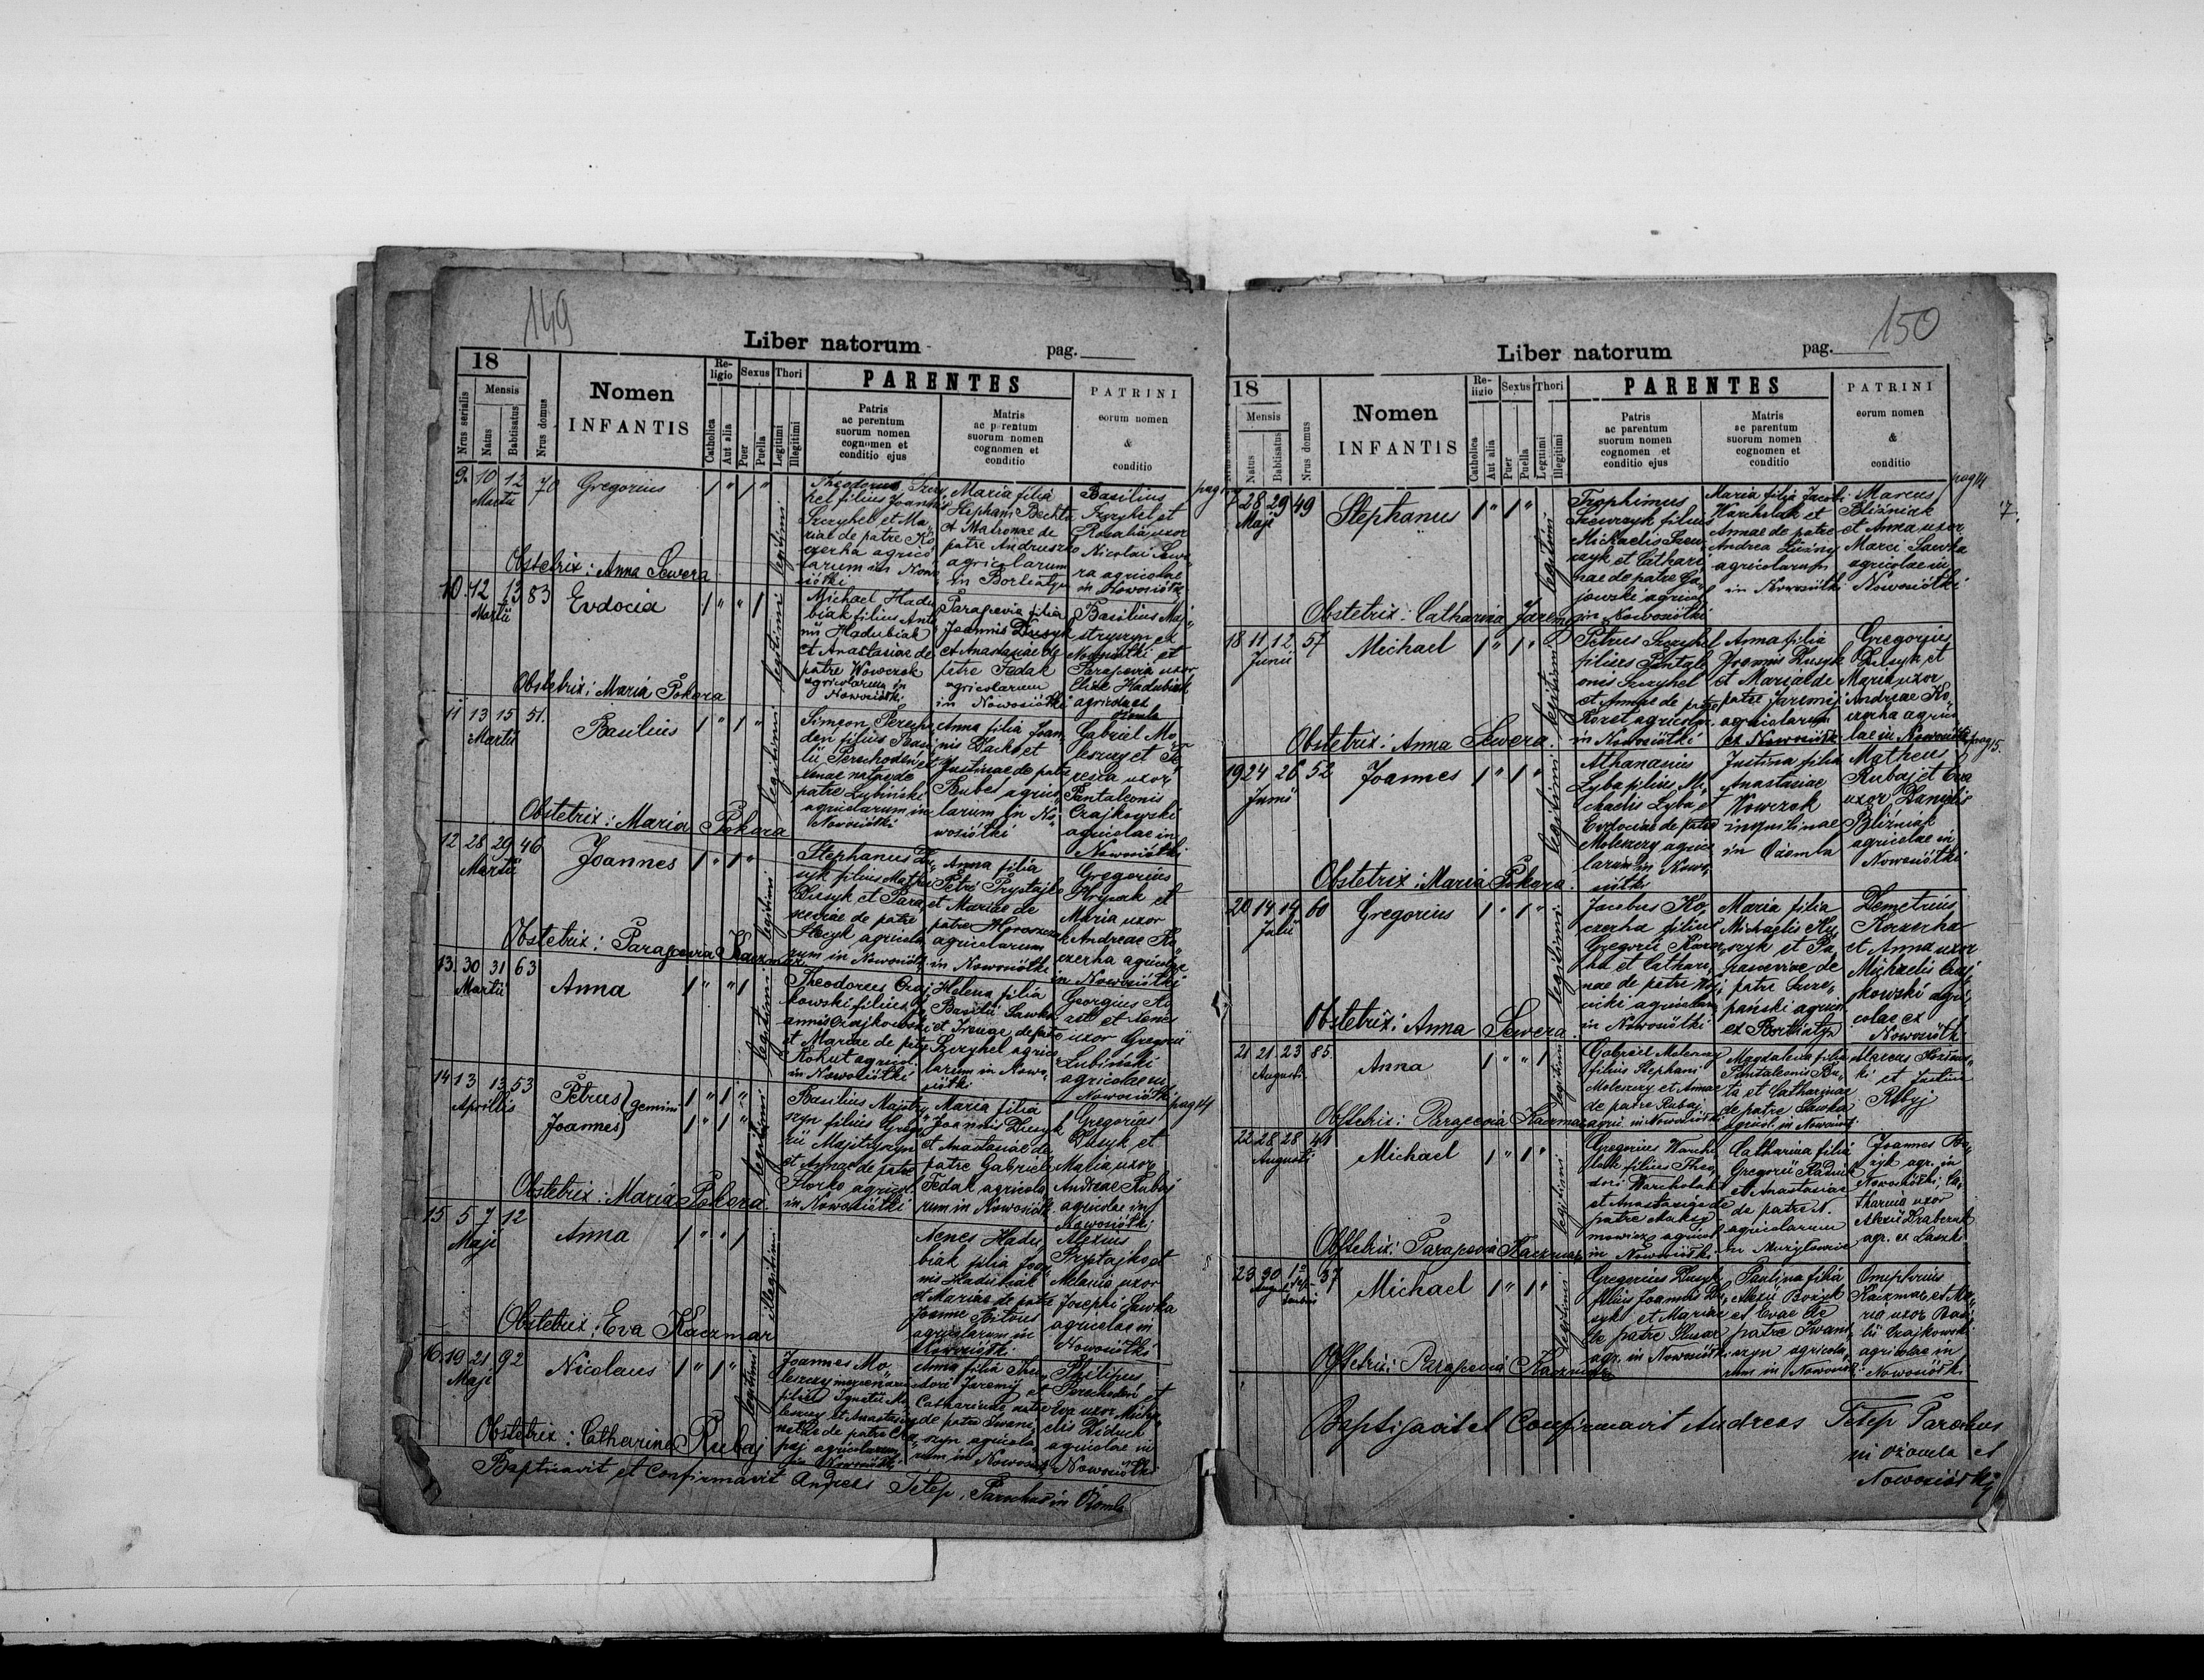 149
Liber natorum
pag.
18
Nrus serialis
Mensis
Natus
Babtisatus
Nrus domus
Nomen
INFANTIS
Re-
ligio
Catholica
Aut alia
Sexus
Puer
Puella
Thori
Legitimi
Illegitimi
PARENTES
Patris
ac perentum
suorum nomen
cognomen et
conditio ejus
Matris
ac parentum
suorum nomen
cognomen et
conditio
PATRINI
eorum nomen
&
conditio
9. 10 12 70 Gregorius
Martii
legitimi
Theodorus Szczy
hel filius Joannis
Szczyhel et Ma„
riae de patre Ko
czerha agrico
larum in Nowo
siółki
Maria filia
Stephani Bechta
et Matronae de
patre Andruszko
agricolarum
in Borteatyn
Basilius
Szczyhel et
Rosalia uxor
Nicolai Sewe
ra agricolae
in Nowosiółki
Obstetrix: Anna Sewera
10. 12 13 83 Evdocia
Martii
legitimi
Michael Hadu
biak filius Anto
nii Hadubiak
et Anastasiae de
patre Wowczok
agricolarum in
Nowosiółki
Parascevia filia
Joannis Dusyk
et Anastasiae de
patre Fedak
agricolarum
in Nowosiółki
Basilius Maj„
strzyn ex
Nowosiółki et
Parascevia uxor
Eliae Hadubiak
agricolae ex
Ożomla
Obstetrix: Maria Pokora
11 13 15 51. Basilius
Martii
legitimi
Simeon Perecho
den filius Basi
lii Perechoden et
Xenae natae de
patre Lubiński
agricolarum in
Nowosiółki
Anna filia Joan
nis Dacko et
Justinae de patre
Bubes agrico
larum in No„
wosiółki
Gabriel Mo
leszcy et Te
resia uxor
Pantaleonis
Czajkowski
agricolae in
Nowosiółki
Obstetrix: Maria Pokora
12 28 29 46 Joannes
Martii
legitimi
Stephanus Du„
syk filius Mathei
Dusyk et Para
sceviae de patre
Stecyk agricola
rum in Nowosiółki
Anna filia
Petri Prystajko
et Mariae de
patre Moroszczak
agricolarum
in Nowosiółki
Gregorius
Hrycak et
Maria uxor
Andreae Ko„
czerha agricolae
in Nowosiółki
Obstetrix: Parascevia Kaczmar
13. 30 31 63 Anna
Martii
legitimi
Theodorus Czaj
kowski filius Jo
annis Czajkowski
et Mariae de patre
Kohut agricol.
in Nowosiółki
Helena filia
Basilii Sawka
et Irenae de patre
Szczyhel agrico
larum in Nowo„
siółki
Georgius
et Xenes
uxor Gregorii
Lubiński
agricolae in
Nowosiółki
14 13 13 53 Petrus gemini
Aprillis
Joannes
legitimi
Basilius Majstry
szyn filius Grego„
rii Majstryszyn
et Annae de patre
Horko agricol.
in Nowosiółki
Maria filia
Joannis Dusyk
et Anastasiae de
patre Gabriel
Fedak agricola
rum in Nowosiółki
pag 14
Gregorius
Dusyk et
Maria uxor
Andreae Rubaj
agricolae in
Nowosiółki
Obstetrix: Maria Pokora
15 5 7 12 Anna
Maji
illegitimi
Xenes Hadu„
biak filia Joan
nis Hadubiak
et Mariae de patre
Joanne
agricolarum in
Nowosiółki
Alexius
Prystajko et
Melania uxor
Josephi Sawka
agricolae in
Nowosiółki
Obstetrix: Eva Kaczmar
16. 19 21 92 Nicolaus
Maji
legitimi
Joannes Mo„
leszcy mercenarius
filius Ignatii Mo
leszcy et Anastasiae
natae de patre
agricolarum
in Nowosiółki
Anna filia Theo„
dori Jaremy et
Catharinae natae
de patre Iwani„
szyn agricola
rum in Nowosiół.
Philipus
Perechoden et
Eva uxor Micha
elis Diduch
agricolae in
Nowosiółki
Obstetrix: Catharina Rubaj
Baptisavit et Confirmavit Andreas Tetep, Parochus in Ożomla
150
Liber natorum
pag.
18
Mensis
Natus
Babtisatus
Nrus domus
Nomen
INFANTIS
Re-
ligio
Catholica
Aut alia
Sexus
Puer
Puella
Thori
Legitimi
Illegitimi
PARENTES
Patris
ac parentum
suorum nomen
cognomen et
conditio ejus
Matris
ac parentum
suorum nomen
cognomen et
conditio
PATRINI
eorum nomen
&
conditio
pag 14
17.
28 29 49 Stephanus
Maji
legitimi
Trophimus
Szewczyk filius
Michaelis Szew„
czyk et Cathari
nae de patre Ga„
jowski agricol
in Nowosiółki
Maria filia Jacobi
Warcholak et
Annae de patre
Andrea Luzny
agricolarum
in Nowosiółki
Marcus
Bliźniak
et Anna uxor
Marci Sawka
agricolae in
Nowosiółki
Obstetrix: Catharina Jaremy
18 11 12 57 Michael
Junii
legitimi
Petrus Szczyhel
filius Pantale
onis Szczyhel
et Annae de patre
Koret agricolar.
in Nowosiółki
Anna filia
Joannis Dusyk
et Mariae de
patre Jaremij
agricolarum
ex Nowosiółki
Gregorius
Dusyk et
Maria uxor
Andreae Ko„
czerha agrico
lae in Nowosiółki
Obstetrix: Anna Sewera.
pag 15.
19 24 26 52 Joannes
Junii
legitimi
Athanasius
Lyba filius Mi„
chaelis Lyba et
Evdociae de patre
Moleszczy agrico
larum in Nowo,
siółki
Justina filia
Anastasiae
Wowczok
inquilinae
in Ożomla
Matheus
Rubaj et Eva
uxor Danielis
Bliźniak
agricolae in
Nowosiółki
Obstetrix: Maria Pokora.
20 14 14 60 Gregorius
Julii
legitimi
Jacobus Ko„
czerha filius
Gregorii Koczer
ha et Cathari„
nae de patre Woj
cicki agricolarum
in Nowosiółki
Maria filia
Michaelis
et Pa
rasceviae de
patre Szcze„
pański agricol
ex Bortiatyn
Demetrius
Koczerha
et Anna uxor
Michaelis Czaj
kowski agri„
colae ex
Nowosiółki
Obstetrix: Anna Sewera
21 21 23 85. Anna
Augusti
legitimi
Gabriel Moleszczy
filius Stephani
Moleszczy et Annae
de patre Rubaj
agri. in Nowosiółki
Magdalena filia
Pantaleonis
et Catharinae
de patre Sawka
agricol. in Nowosiółki
Marcus
et Justina
Rubaj
Obstetrix: Parascevia Kaczmar
22 28 28 41 Michael
Augusti
legitimi
Gregorius Warcho
lak filius Theo,
dori Warcholak
et Anastasiae de
patre Maksy
mowicz agricol
in Nowosiółki
Catharina filia
Gregorii
et Anastasiae
de patre N.
agricolarum
in Mużyłowice
Joannes
agr. in
Nowosiółki, Ca„
tharina uxor
Alexii
agr. ex Laszki
Obstetrix: Parascevia Kaczmar
23 30 1 37 Michael
legitimi
Gregorius Dusyk
filius Joannis Du„
syk et Mariae
de patre Slusar
agr. in Nowosiółki
Paulina filia
Alexii Bożyk
et Evae de
patre Iwani,
szyn agricola,
rum in Nowosiół
Omiphrius
Kaczmar et Ma„
ria uxor Basi„
lii Czajkowski
agricolae in
Nowosiółki
Obstetrix: Parascevia Kaczmar
Baptisavit et Confirmavit Andreas Tetep Parochus
in Ożomla et
Nowosiółki